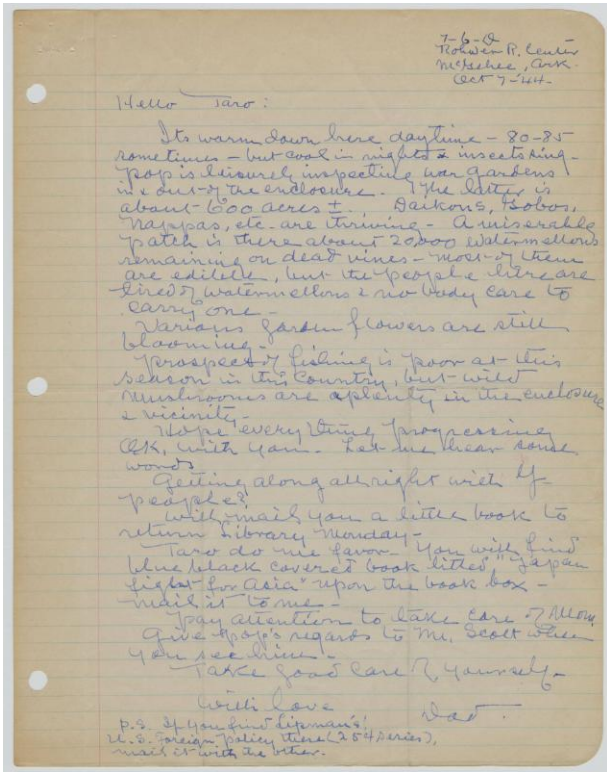 7-6-D
Rohwer R. Center
McGehee, Ark.
Oct 7-'44-
Hello Taro:
Its warm down here daytime - 80-85
sometimes - but cool in nights & insects sing -
Pop is leisurely inspecting war gardens
in & out of the enclosure. The latter is
about 600 acres ±. Daikons, Gobos,
Nappas, etc. are thriving - A miserable
patch is there about 20,000 watermellons
remaining on dead vines - most of them
are edible, but the people here are
tired of watermellons & no body care to
carry one -
Various garden flowers are still
blooming -
Prospect of fishing is poor at this
season in this country, but wild
mushrooms are aplenty in the enclosure
& vicinity -
Hope every thing progressing
OK. with you - Let me hear some
words
Getting along all right with
people?
Will mail you a little book to
return Library Monday -
Taro do me favor - You will find
blue black covered book titled "Japan
fight for Asia" upon the book box -
mail it to me -
Pay attention to take care of Mom.
Give Pop's regards to Mr. Scott when
you see him -
Take good care of yourself -
With love
Dad.
P.S. If you find Lipman's!
U.S. Foreign Policy there (25¢ series),
mail it with the other.